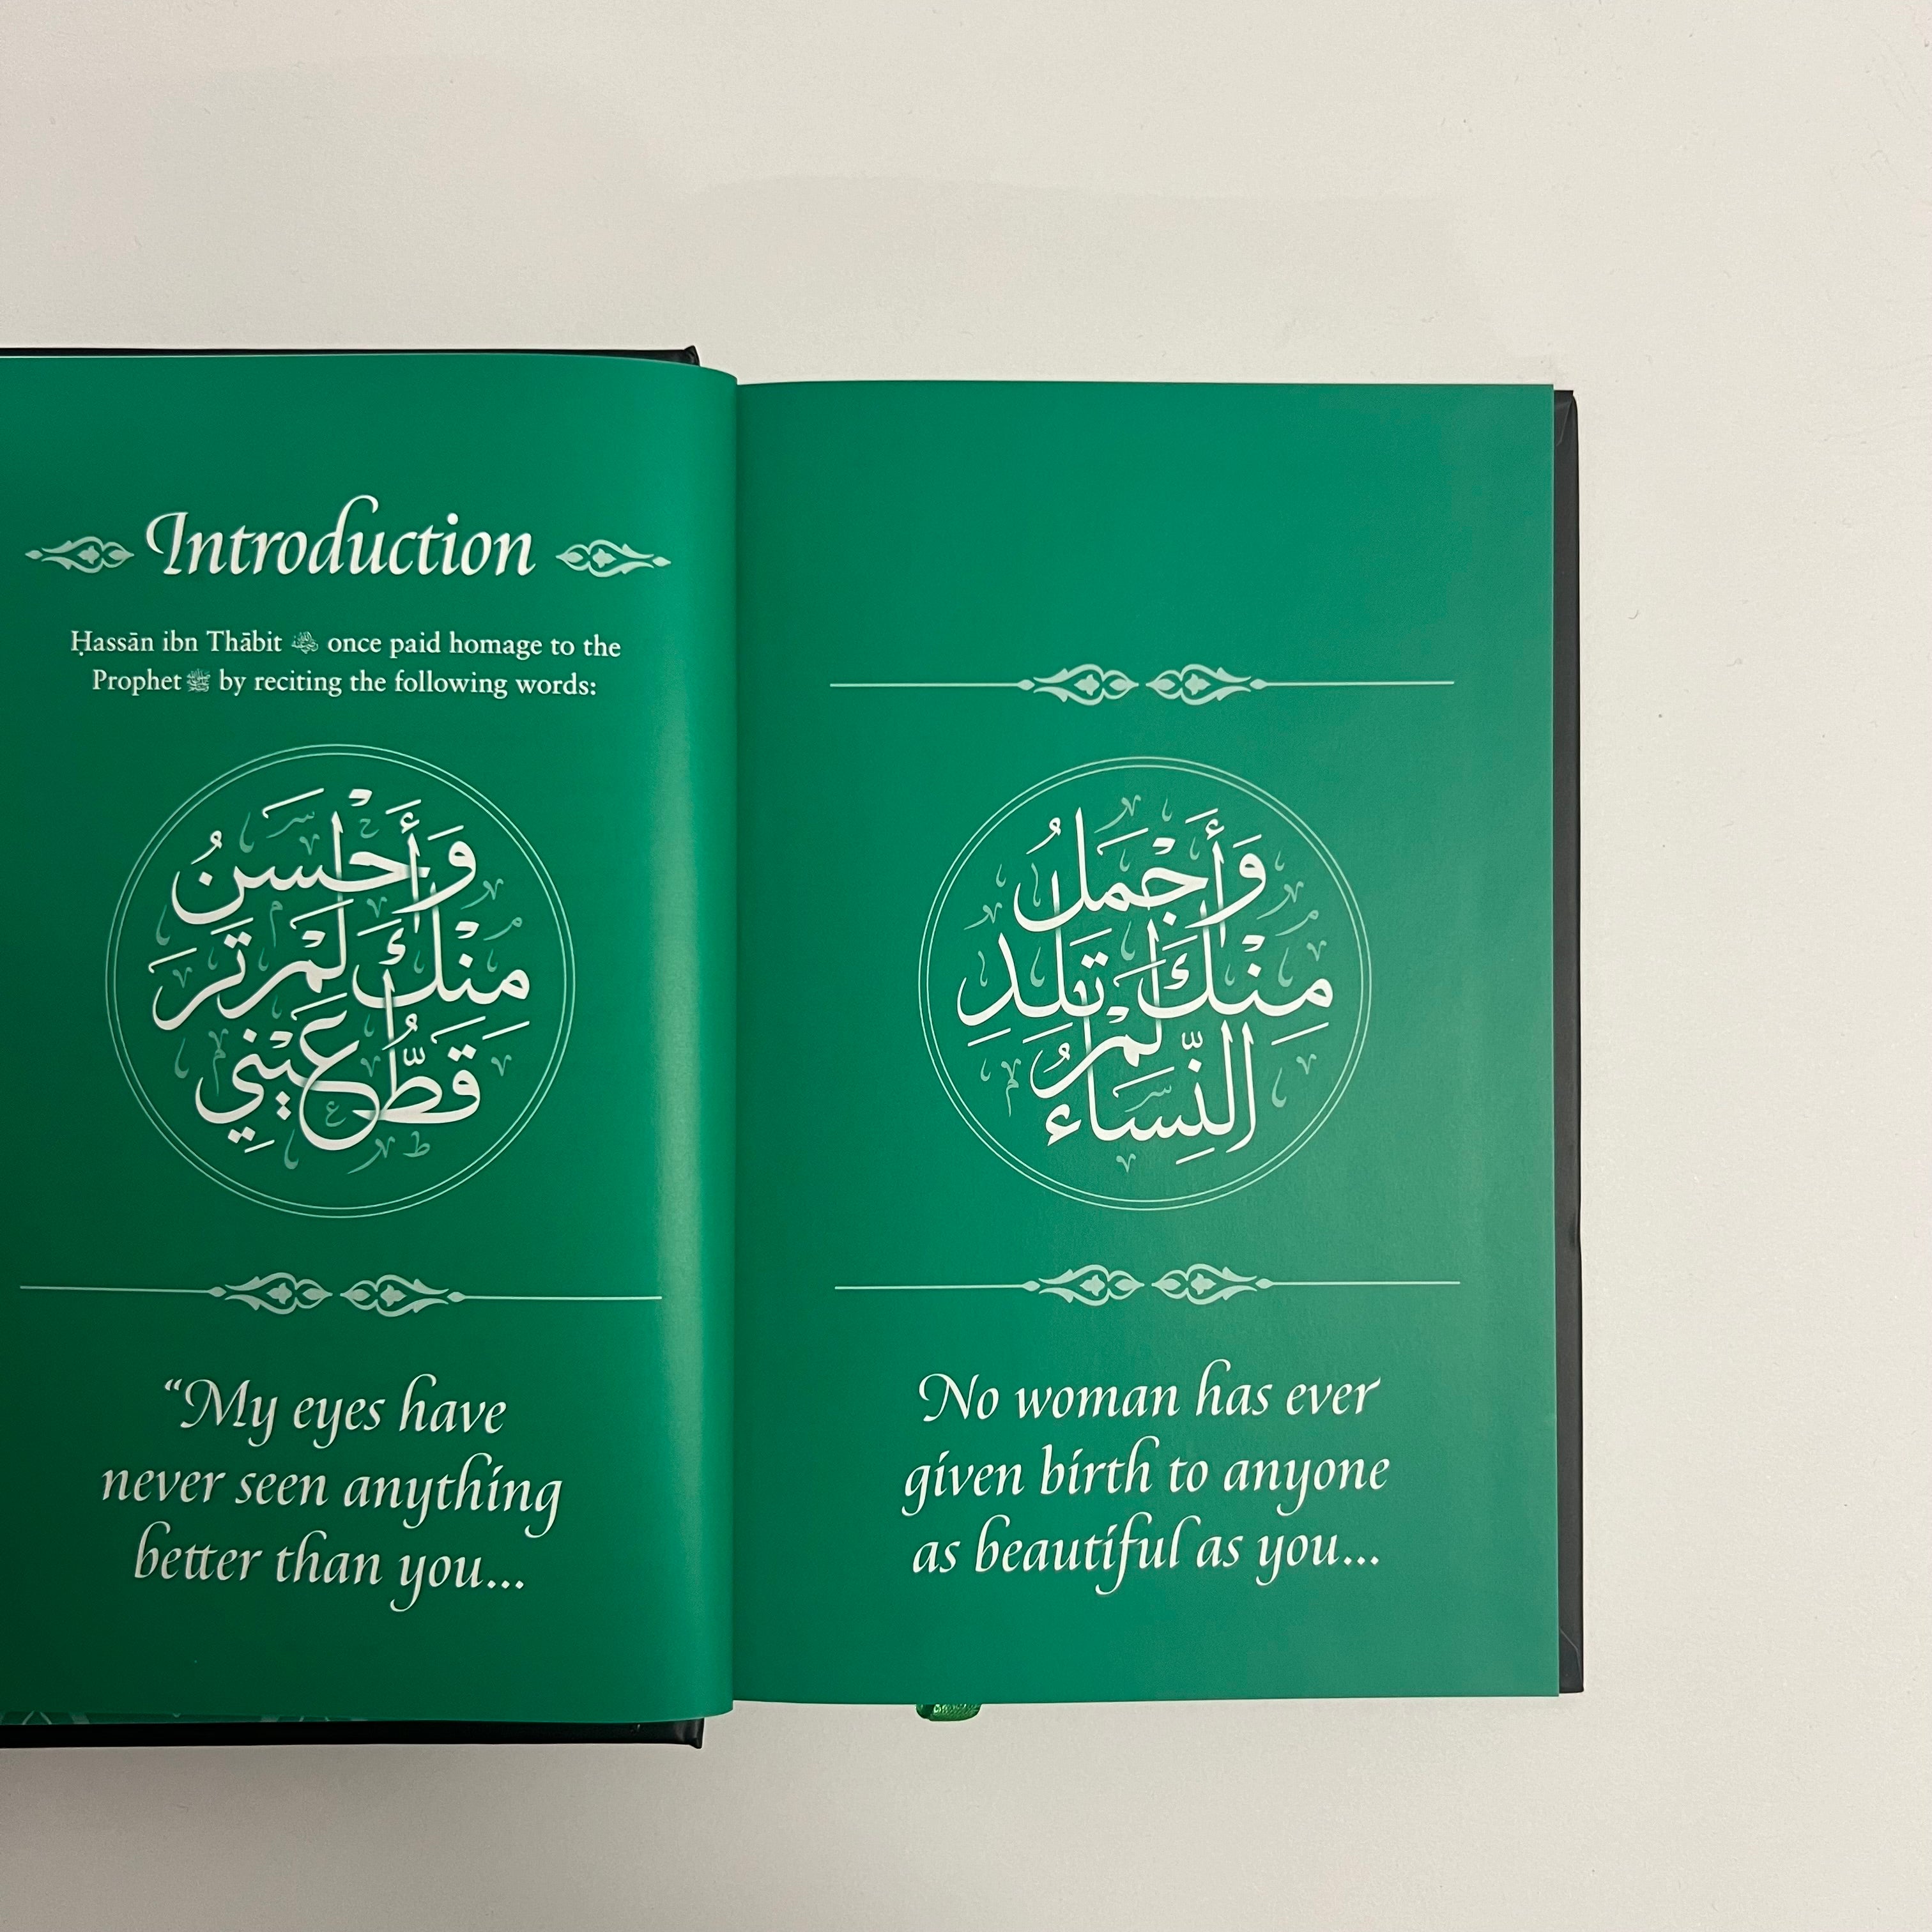 Introduction
Ḥassān ibn Thābit رضي الله عنه once paid homage to the
Prophet ﷺ by reciting the following words:
وَأَحْسَنُ
مِنْكَ لَمْ تَرَ
قَطُّ عَيْنِي
“My eyes have
never seen anything
better than you...
وَأَجْمَلُ
مِنْكَ لَمْ تَلِدِ
النِّسَاءُ
No woman has ever
given birth to anyone
as beautiful as you...